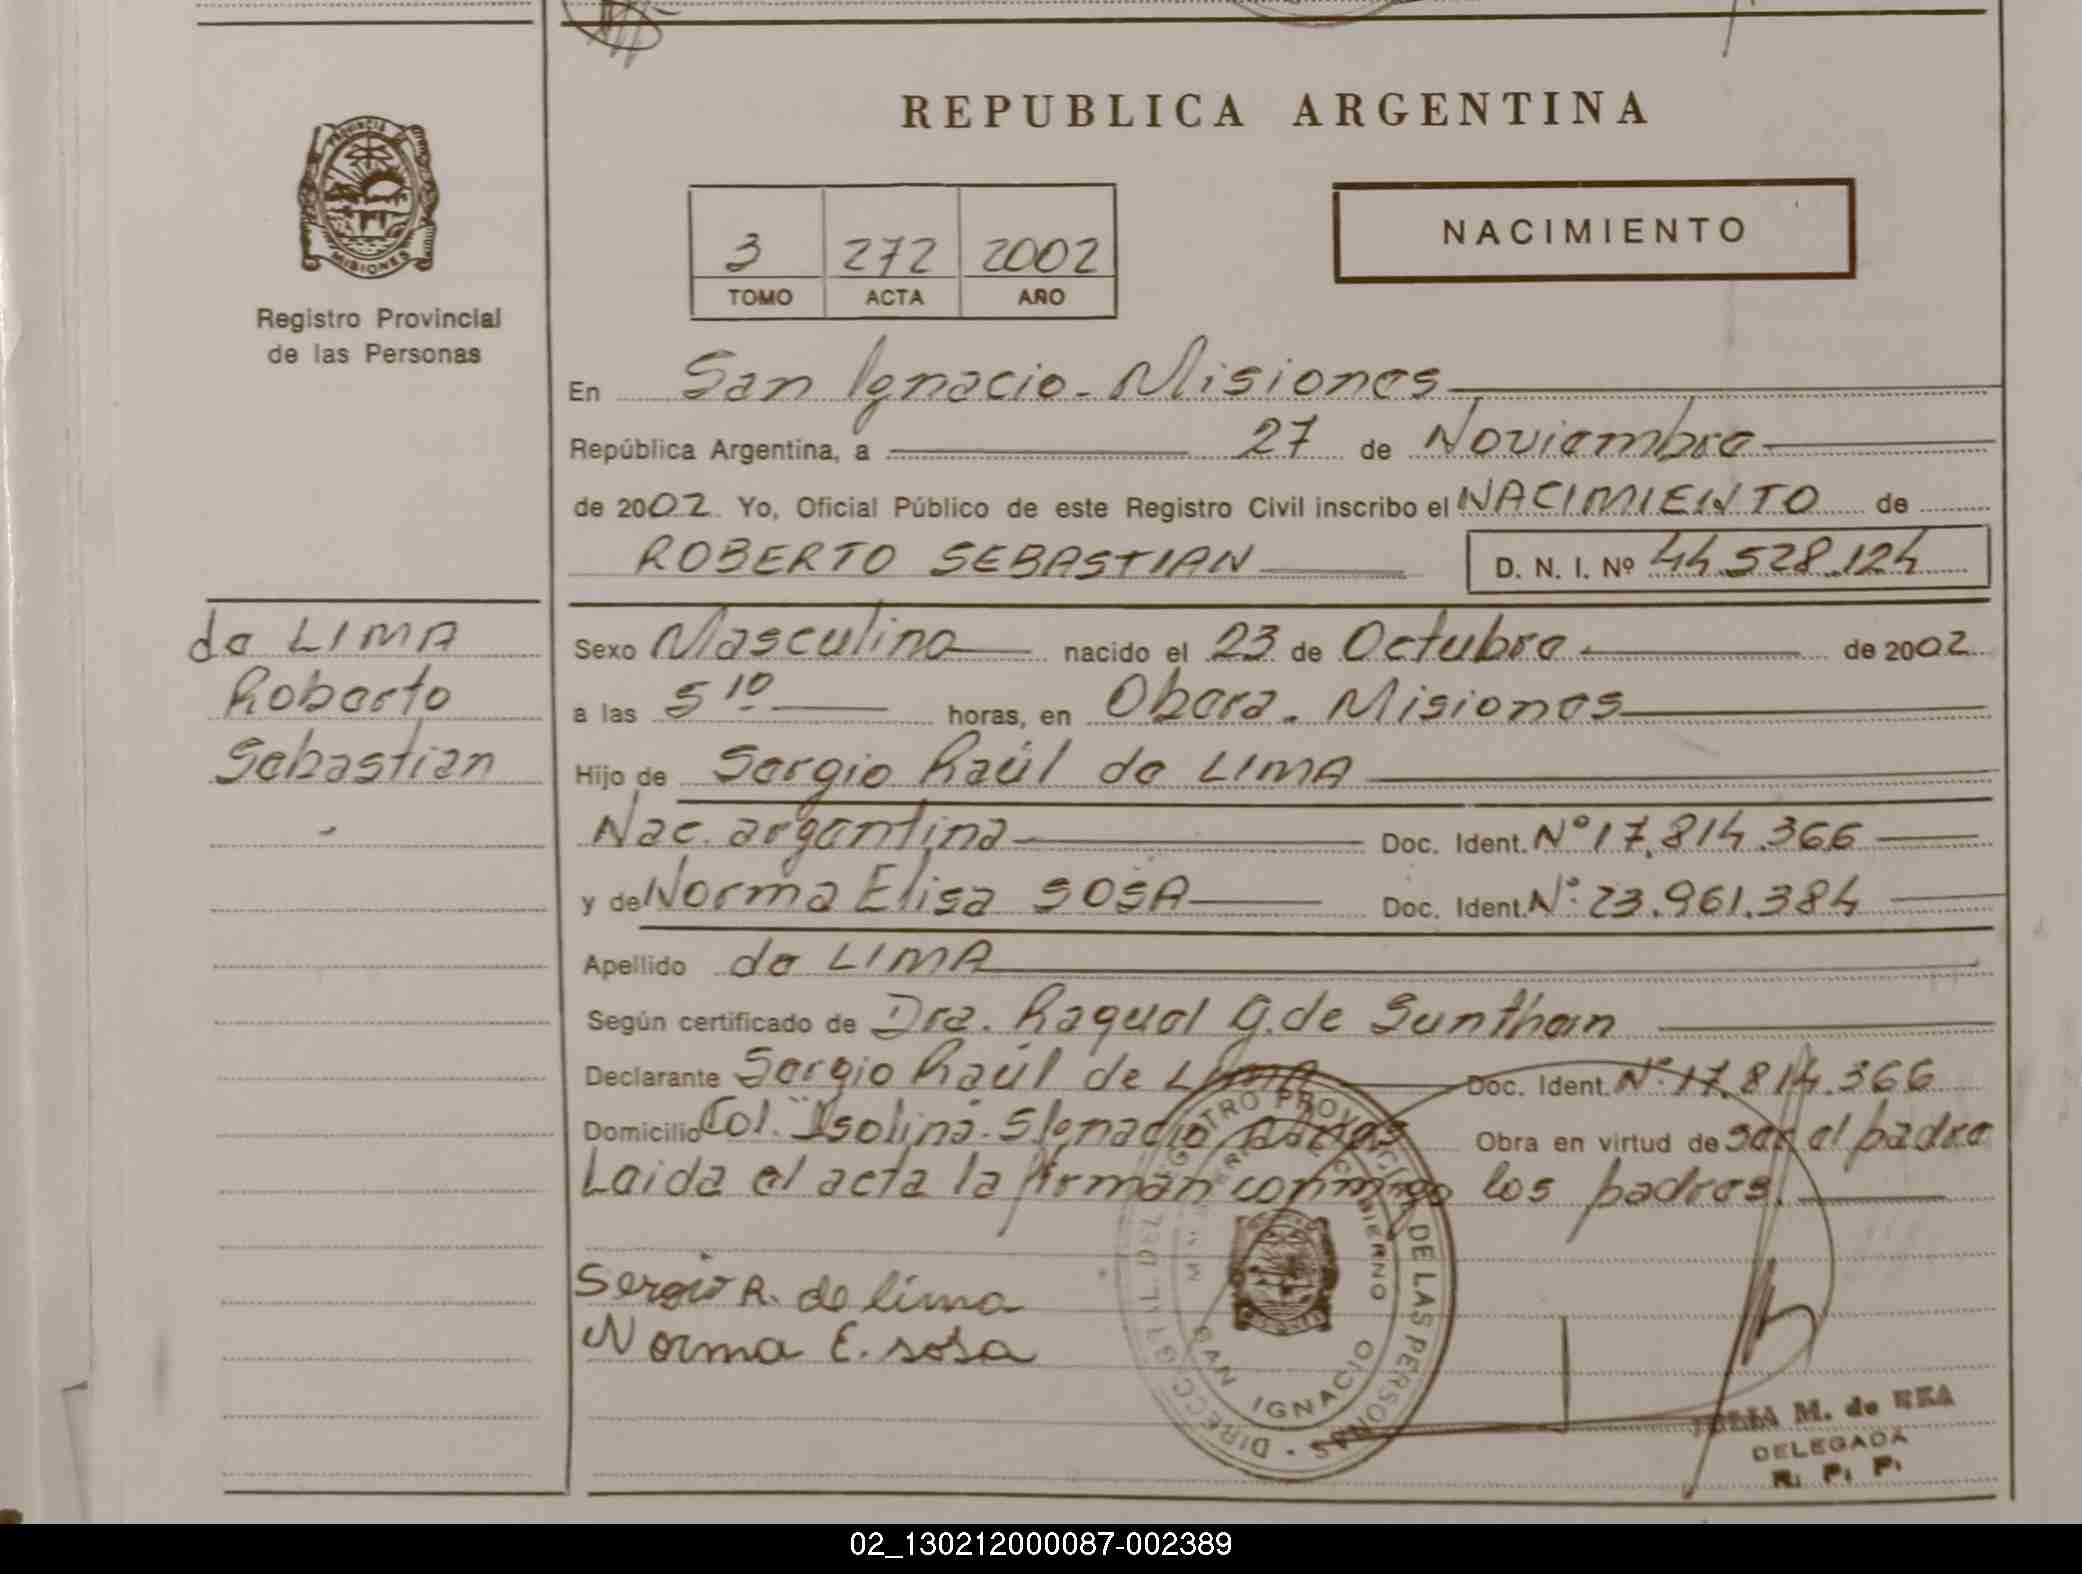 REPUBLICA ARGENTINA
PROVINCIA DE
MISIONES
Registro Provincial
de las Personas
3 272 2002
TOMO ACTA AÑO
NACIMIENTO
En San Ignacio - Misiones
República Argentina, a 27 de Noviembre
de 2002 Yo, Oficial Público de este Registro Civil inscribo el NACIMIENTO de
ROBERTO SEBASTIAN D. N. I. Nº 44.528.124
de LIMA
Roberto
Sebastian
Sexo Masculino nacido el 23 de Octubre de 2002
a las 5 10 horas, en Obera - Misiones
Hijo de Sergio Raúl de LIMA
Nac. argentina Doc. Ident. Nº 17.814.366
y de Norma Elisa SOSA Doc. Ident. Nº: 23.961.384
Apellido de LIMA
Según certificado de Dra. Raquel G. de Sunthen
Declarante Sergio Raúl de Lima Doc. Ident. Nº: 17.814.366
Domicilio Col. "Isolina" S/Ignacio Obra en virtud de ser el padre
Leida el acta la firman conmigo los padres.
Sergio R. de lima
Norma E. sosa
DIRECCION GRAL. DEL REGISTRO PROVINCIAL DE LAS PERSONAS
SAN IGNACIO
M. de REA
DELEGADA
R. P. P.
02_130212000087-002389